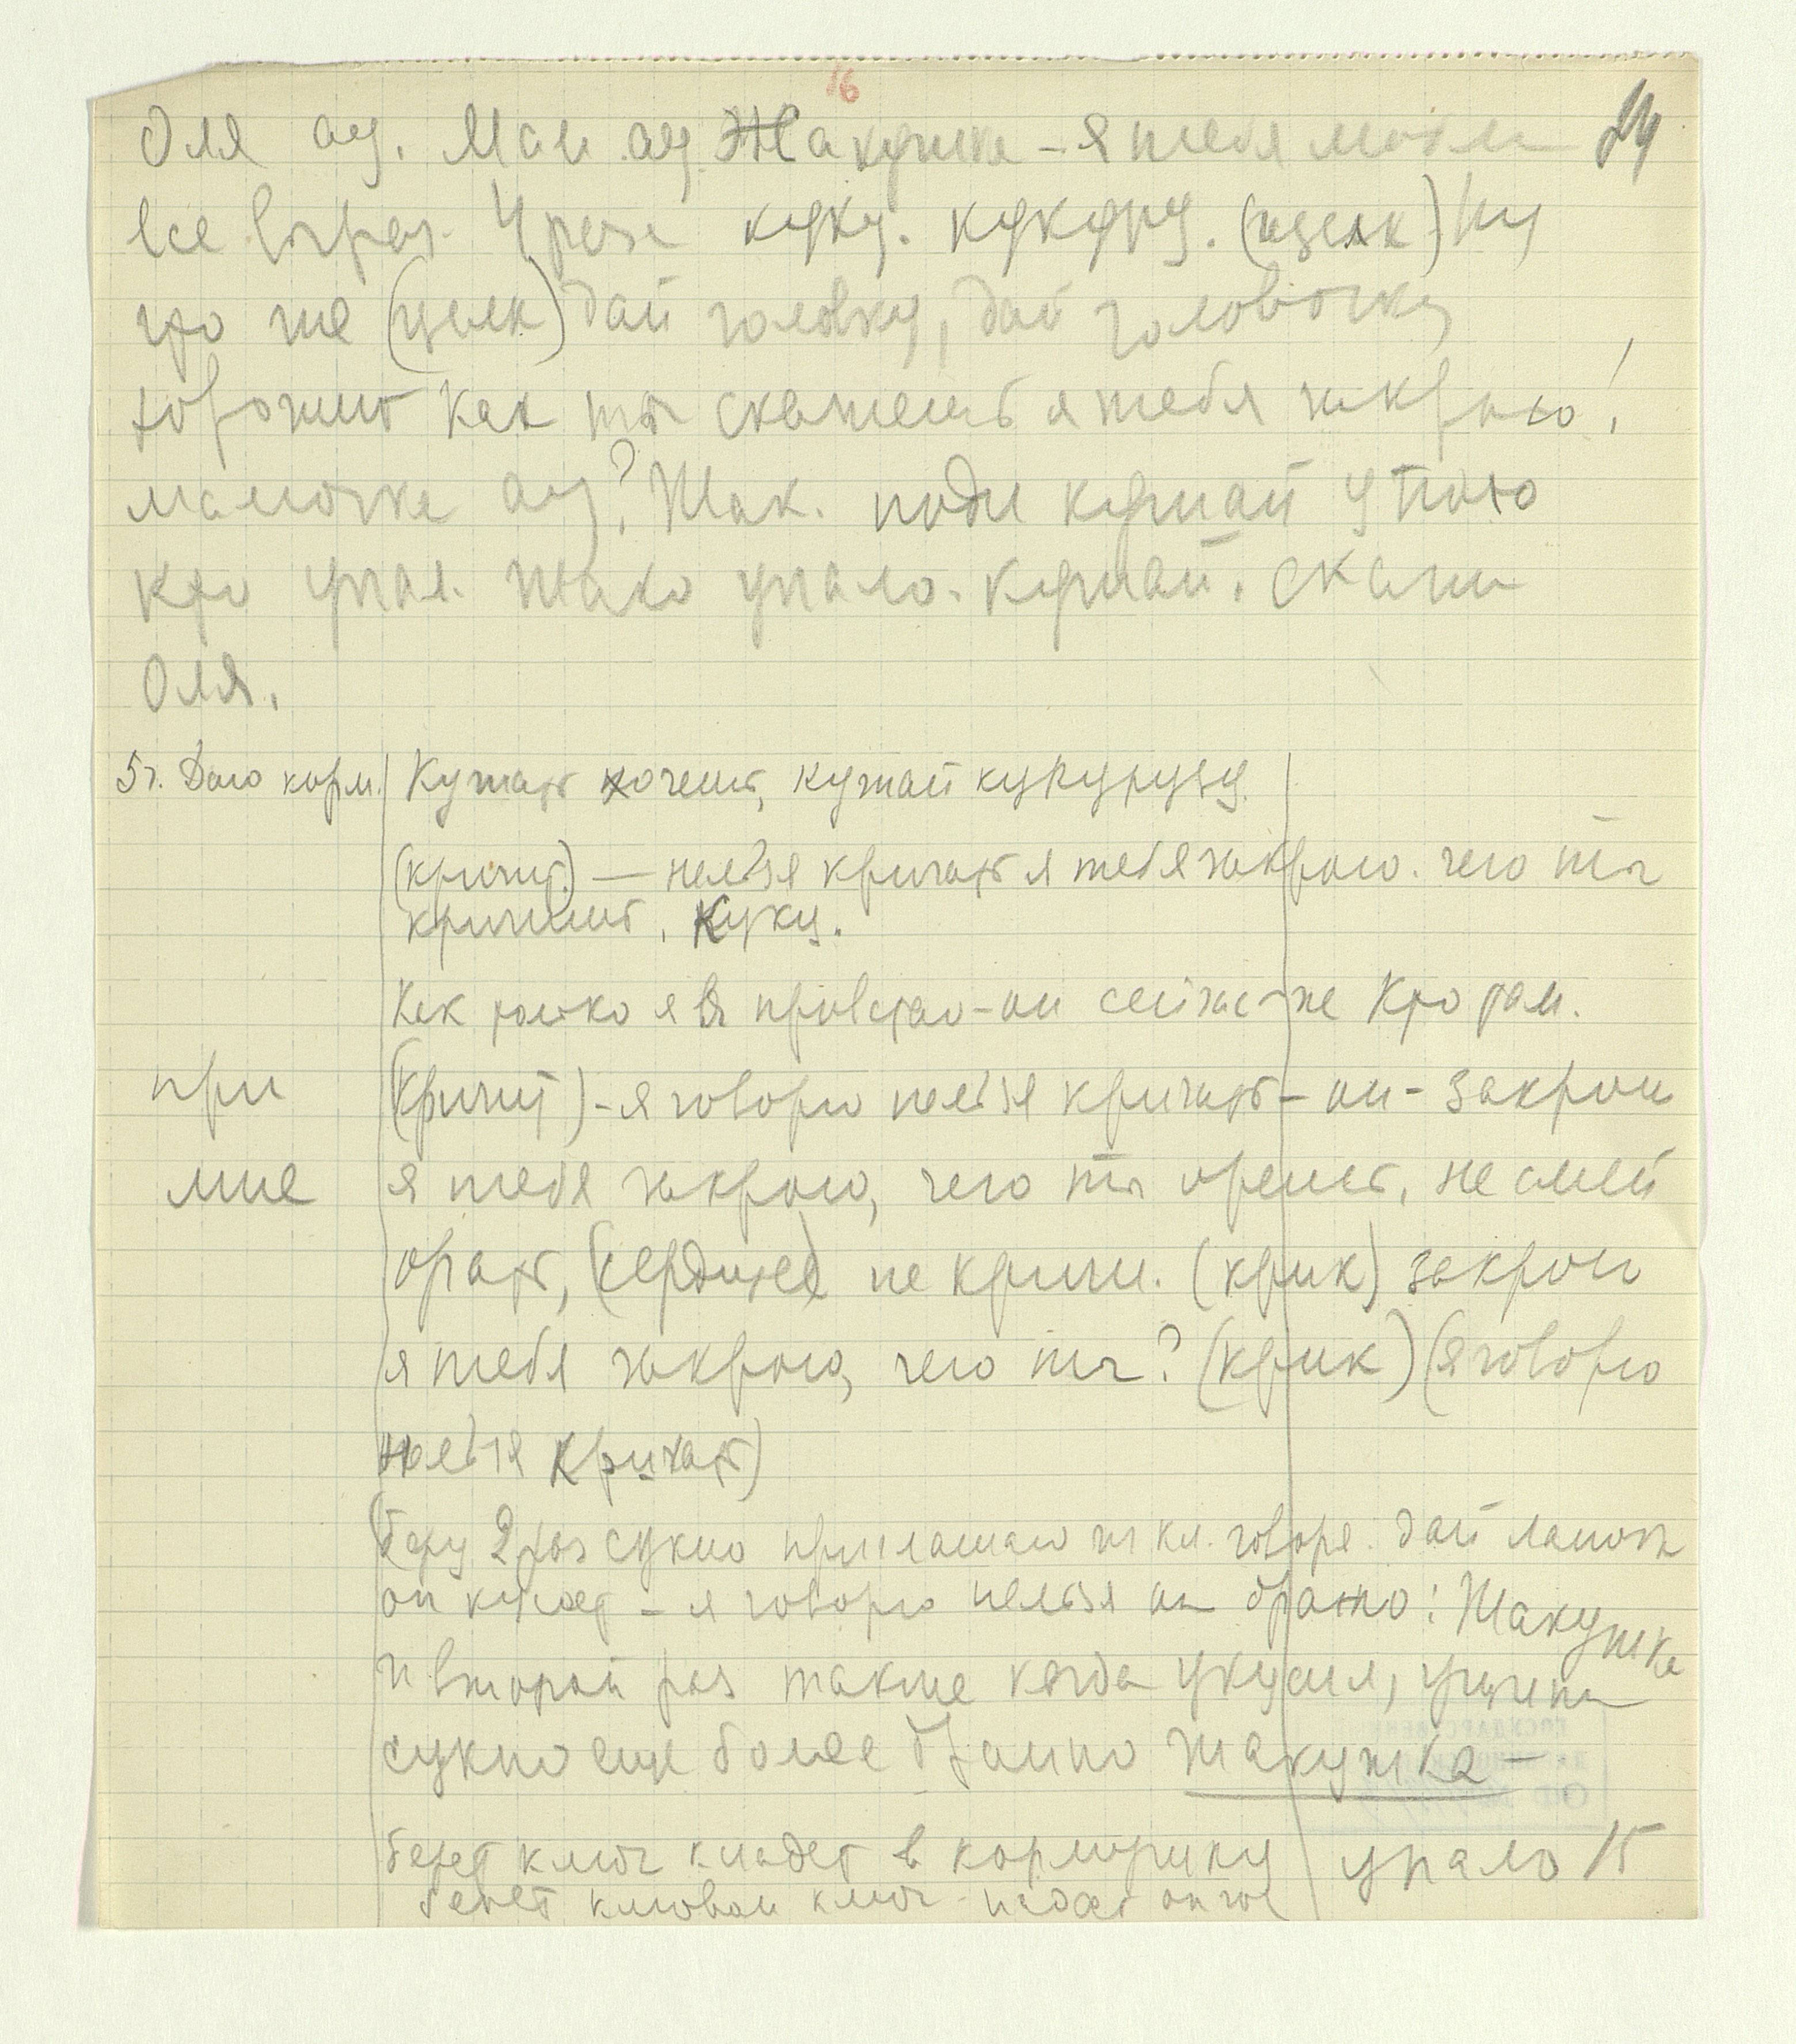 16
Оля ау. Мам ау. Жакушка – я тебя
все Через куку. кукуру. (щелк) Ну
что же (щелк) дай головку, дай головочку
хорошит как ты скажешь я тебя закрою!
мамочка ау? Жак. поди кушай
кто упал. Жако упало. кушай. скажи
Оля.
5ч. Даю корм. Кушать хочешь, кушай кукурузу.
(кричит) — нельзя кричать я тебя закрою. чего ты
кричишь. Куку.
Как только я привстаю – он сейчас же Кто там.
при (кричит) – я говорю нельзя кричать – он – закрою
мне я тебя закрою, чего ты орешь, не смей
орать, (сердитее) не кричи. (крик) закрою
я тебя закрою, чего ты? (крик) (я говорю
нельзя кричать)
(беру 2 раз сукно приглашаю из кл. говоря дай лапочку
он кусает – я говорю нельзя он бранно: Жакушка
и второй раз также когда укусил, ущипнул
сукно еще более бранно Жакушка –
берет ключ кладет в кормушку упало 15
берет клювом ключ